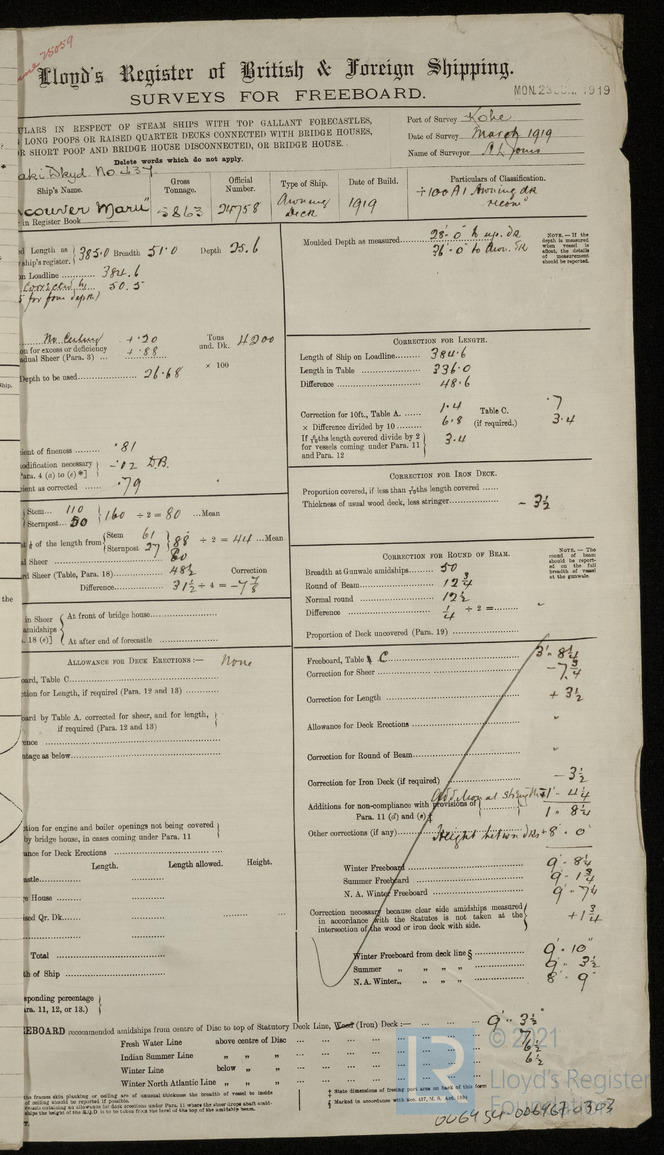 25059
Lloyd's Register of British & Foreign Shipping.
SURVEYS FOR FREEBOARD.
MON. 23 1919
ULARS IN RESPECT OF STEAM SHIPS WITH TOP GALLANT FORECASTLES,
LONG POOPS OR RAISED QUARTER DECKS CONNECTED WITH BRIDGE HOUSES,
R SHORT POOP AND BRIDGE HOUSE DISCONNECTED, OR BRIDGE HOUSE.
Delete words which do not apply.
Port of Survey Kobe
Date of Survey March 1919
Name of Surveyor A L Jones
aki Dkyd. No. 437
Ship's Name.
Gross Tonnage.
Official Number.
Type of Ship.
Date of Build.
Particulars of Classification.
couver Maru"
in Register Book
5863
24758
Awning Deck
1919
+100A1 Awning dk
"
Length as ship's register. 385.0 Breadth 51.0 Depth 25.6
n Loadline 384.6
50.5
No Ceiling + .20
on for excess or deficiency
dual Sheer (Para. 3) + .88
Tons und. Dk. 4200
× 100
Depth to be used 26.68
ient of fineness .81
odification necessary
Para. 4 (a) to (e)*] -.02 D.B.
ient as corrected .79
Stem 110
Sternpost 50
160 ÷ 2 = 80 ...Mean
of the length from Stem 61
Sternpost 27
88 ÷ 2 = 44 ...Mean
al Sheer 80
rd Sheer (Table, Para. 18) 48½ Correction
Difference 31½ ÷ 4 = -7⅞
the
in Sheer
amidships
18 (e)]
At front of bridge house
At after end of forecastle
ALLOWANCE FOR DECK ERECTIONS :— None
oard, Table C
ction for Length, if required (Para. 12 and 13)
oard by Table A. corrected for sheer, and for length,
if required (Para. 12 and 13)
ence
ntage as below
tion for engine and boiler openings not being covered
by bridge house, in cases coming under Para. 11
ance for Deck Erections
Length. Length allowed. Height.
astle
e House
ised Qr. Dk.
Total
th of Ship
sponding percentage
ara. 11, 12, or 13.)
Moulded Depth as measured 28'-0" to up. dk
36'-0" to Awn. dk
NOTE.—If the depth is measured when vessel is afloat, the details of measurement should be reported.
CORRECTION FOR LENGTH.
Length of Ship on Loadline 384.6
Length in Table 336.0
Difference 48.6
Correction for 10ft., Table A. 1.4 Table C. .7
× Difference divided by 10 6.8 (if required.) 3.4
If 6/10ths length covered divide by 2
for vessels coming under Para. 11
and Para. 12 3.4
CORRECTION FOR IRON DECK.
Proportion covered, if less than 7/10ths length covered
Thickness of usual wood deck, less stringer - 3½
CORRECTION FOR ROUND OF BEAM.
Breadth at Gunwale amidships 50
Round of Beam 12¾
Normal round 12½
Difference ¼ ÷ 2 =
Proportion of Deck uncovered (Para. 19)
NOTE.—The round of beam should be reported on the full breadth of vessel at the gunwale.
Freeboard, Table C 3'- 8¼
Correction for Sheer - 7¾
Correction for Length + 3½
Allowance for Deck Erections "
Correction for Round of Beam "
Correction for Iron Deck (if required) - 3½
Addition at strength +1'- 4¼
Additions for non-compliance with provisions of
Para. 11 (d) and (e) 1 . 8½
Other corrections (if any) Height betwn dks +8' . 0"
Winter Freeboard 9'- 8½
Summer Freeboard 9'- 1¾
N. A. Winter Freeboard 9'- 7¼
Correction necessary because clear side amidships measured
in accordance with the Statutes is not taken at the
intersection of the wood or iron deck with side. +1¾
Winter Freeboard from deck line § 9'. 10"
Summer „ „ „ „ 9'. 3½
N. A. Winter „ „ „ „ 8'. 9"
EEBOARD recommended amidships from centre of Disc to top of Statutory Deck Line, Wood (Iron) Deck :— 9'. 3½"
Fresh Water Line above centre of Disc 7
Indian Summer Line „ „ „ 6½
Winter Line below „ „ 6½
Winter North Atlantic Line „ „ „
‡ State dimensions of freeing port area on back of this form
§ Marked in accordance with Sec. 437, M. S. Act. 1894
© 2021
LR
Lloyd's Register
Foundation
006954-006967-0303